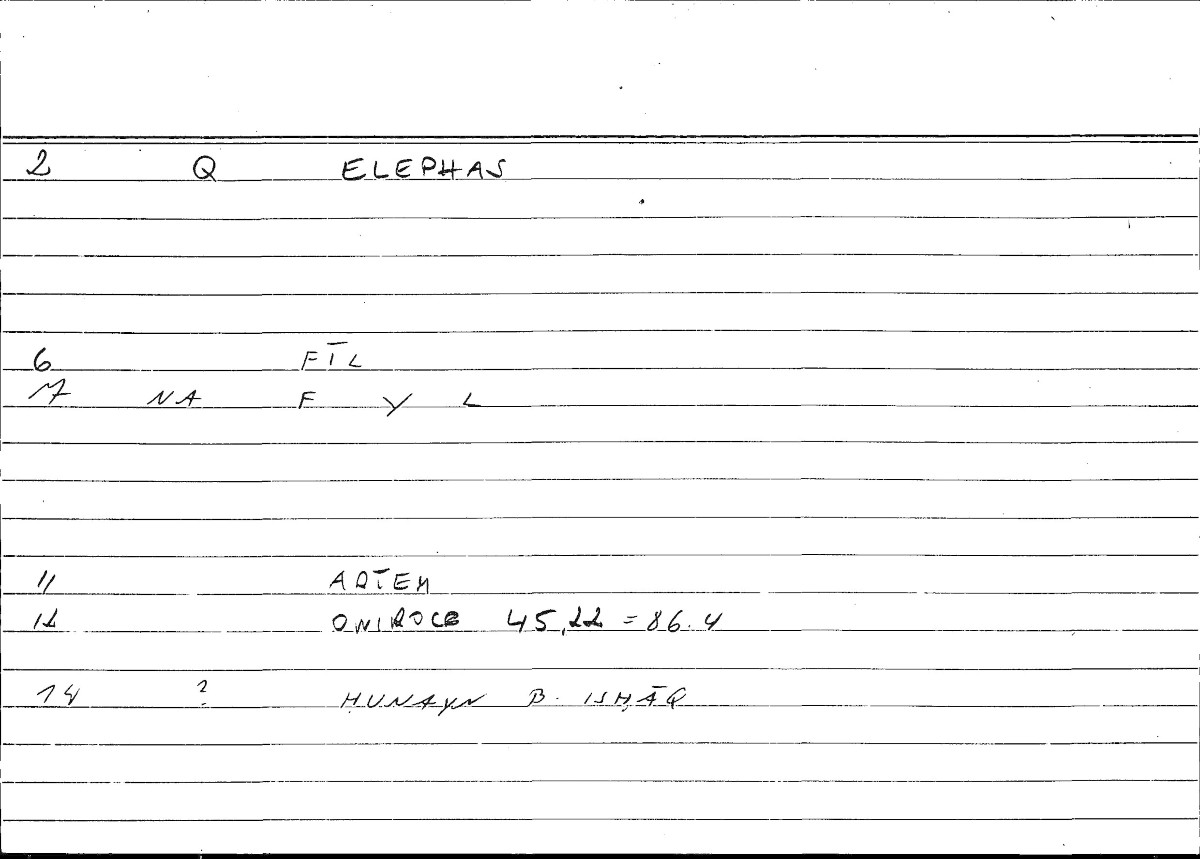 2 Q ELEPHAS
6 FĪL
7 NA F Y L
11 ARTEM
12 ONIROCR 45,22 = 86.4
14 ? ḤUNAYN B. ISḤĀQ